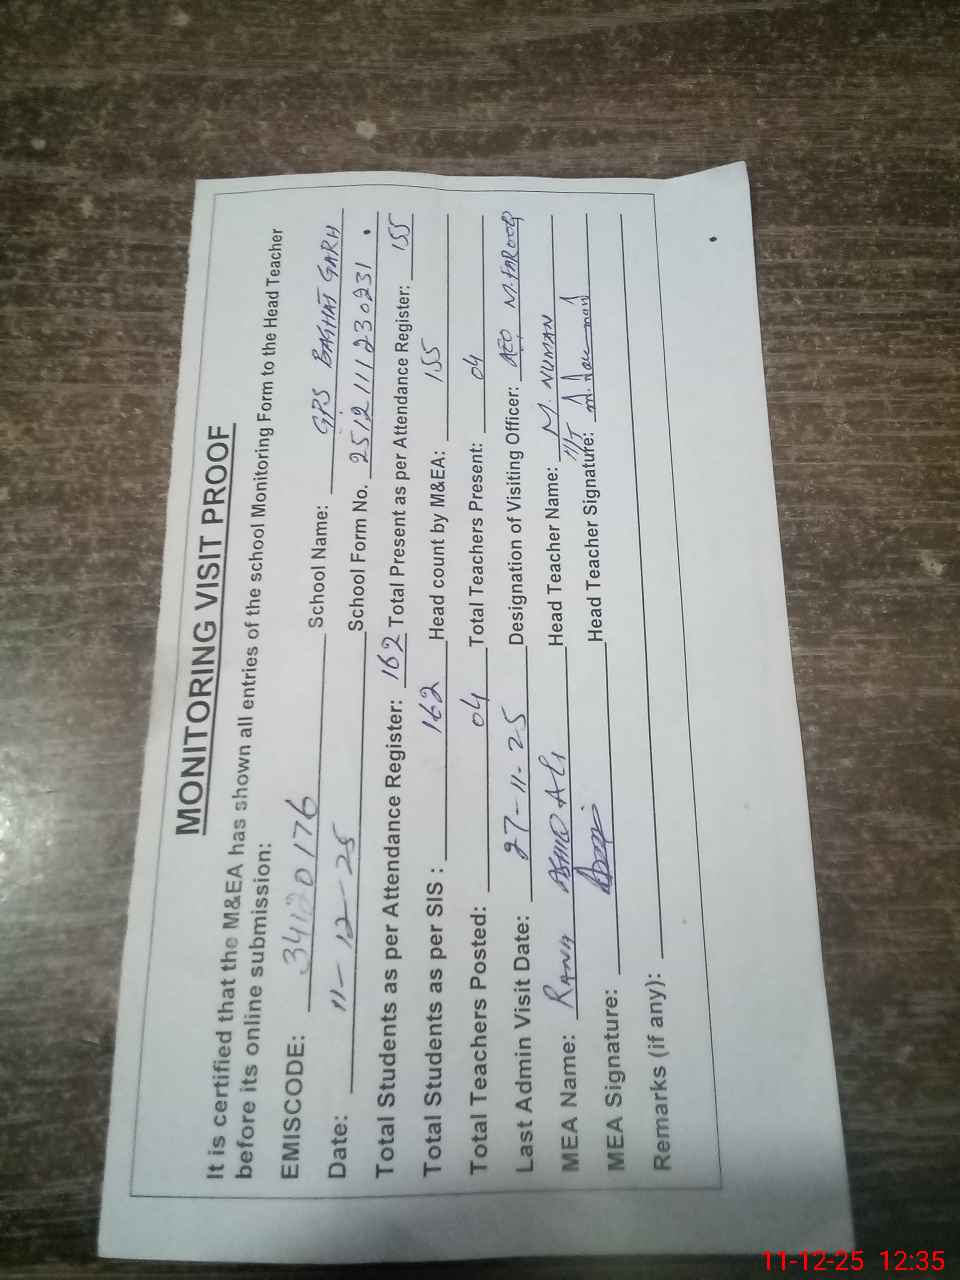 MONITORING VISIT PROOF
It is certified that the M&EA has shown all entries of the school Monitoring Form to the Head Teacher
before its online submission:
EMISCODE: 34120176 School Name: GPS BAJHAT GARH
Date: 11-12-25 School Form No. 2512111230231
Total Students as per Attendance Register: 162 Total Present as per Attendance Register: 155
Total Students as per SIS : 162 Head count by M&EA: 155
Total Teachers Posted: 04 Total Teachers Present: 04
Last Admin Visit Date: 27-11-25 Designation of Visiting Officer: AEO M.FAROOQ
MEA Name: RANA ALI Head Teacher Name: M. NUMAN
MEA Signature: Head Teacher Signature:
Remarks (if any):
11-12-25 12:35